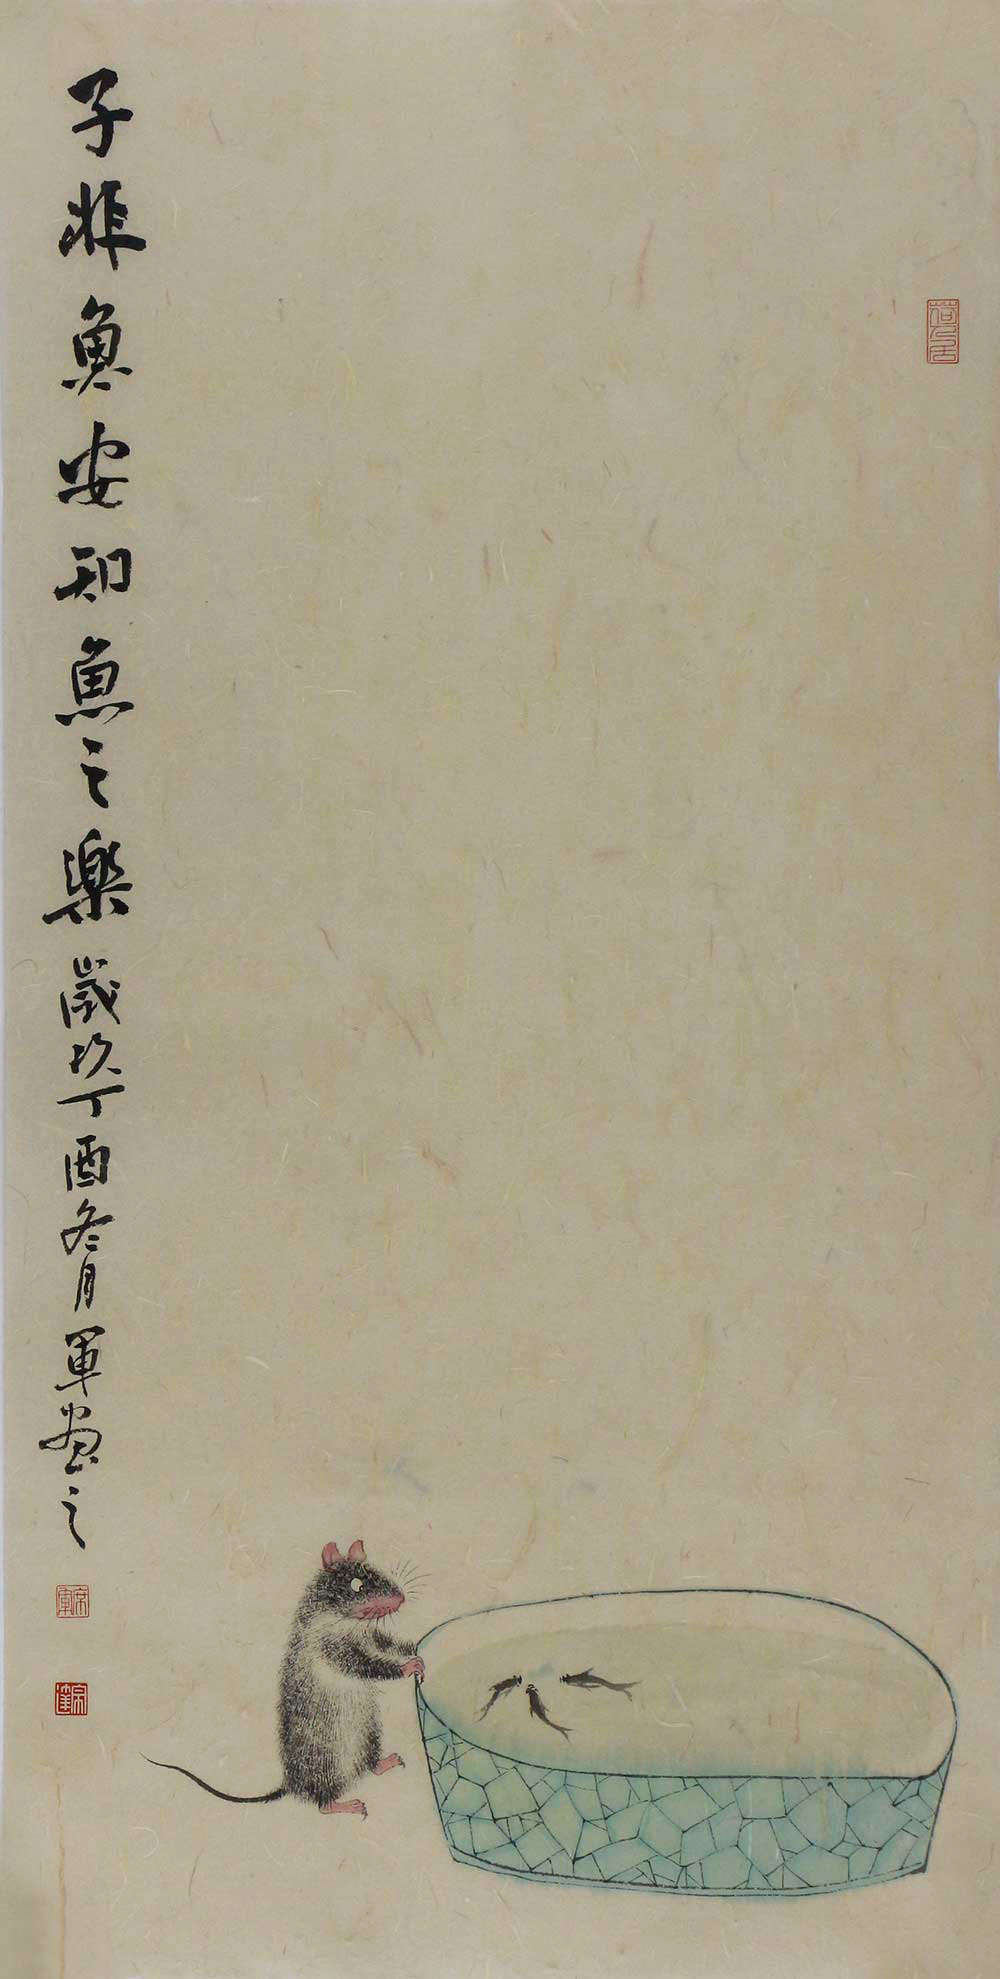 子非魚安知魚之樂歲次丁酉冬月軍画之